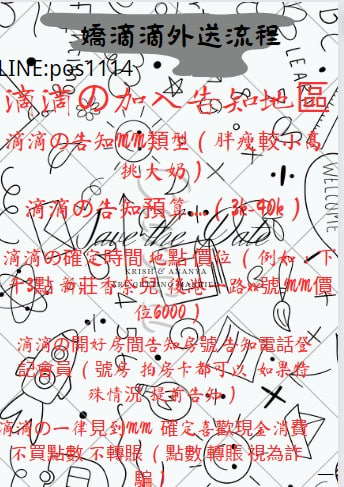 嬌滴滴外送流程
LINE:pos1114
滴滴の加入告知地區
滴滴の告知MM類型（胖瘦較小高
挑大奶）
滴滴の告知預算...（3k-40k）
Save the Date
滴滴の確定時間 地點 價位（例如：下
KRISH & ANANYA
午3點 新莊香
路xx號 MM價
位6000）
滴滴の開好房間告知房號 告知電話登
記會員（號房 拍房卡都可以 如果特
殊情況 提前告知）
滴滴の一律見到MM 確定喜歡現金消費
不買點數 不轉賬（點數 轉賬 視為詐
騙）